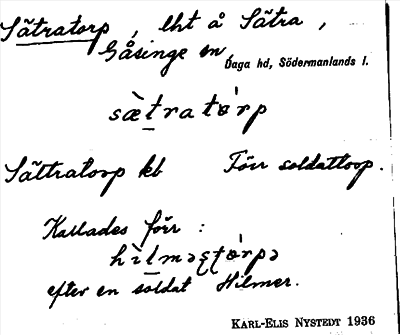 Sätratorp, lht å Sätra,
Gåsinge sn,
Daga hd, Södermanlands l.
sæ̀tratὼrp
Sättratorp kb Förr soldattorp.
Kallades förr :
hìlməʂʈὼrpə
efter en soldat Hilmer.
KARL-ELIS NYSTEDT 1936